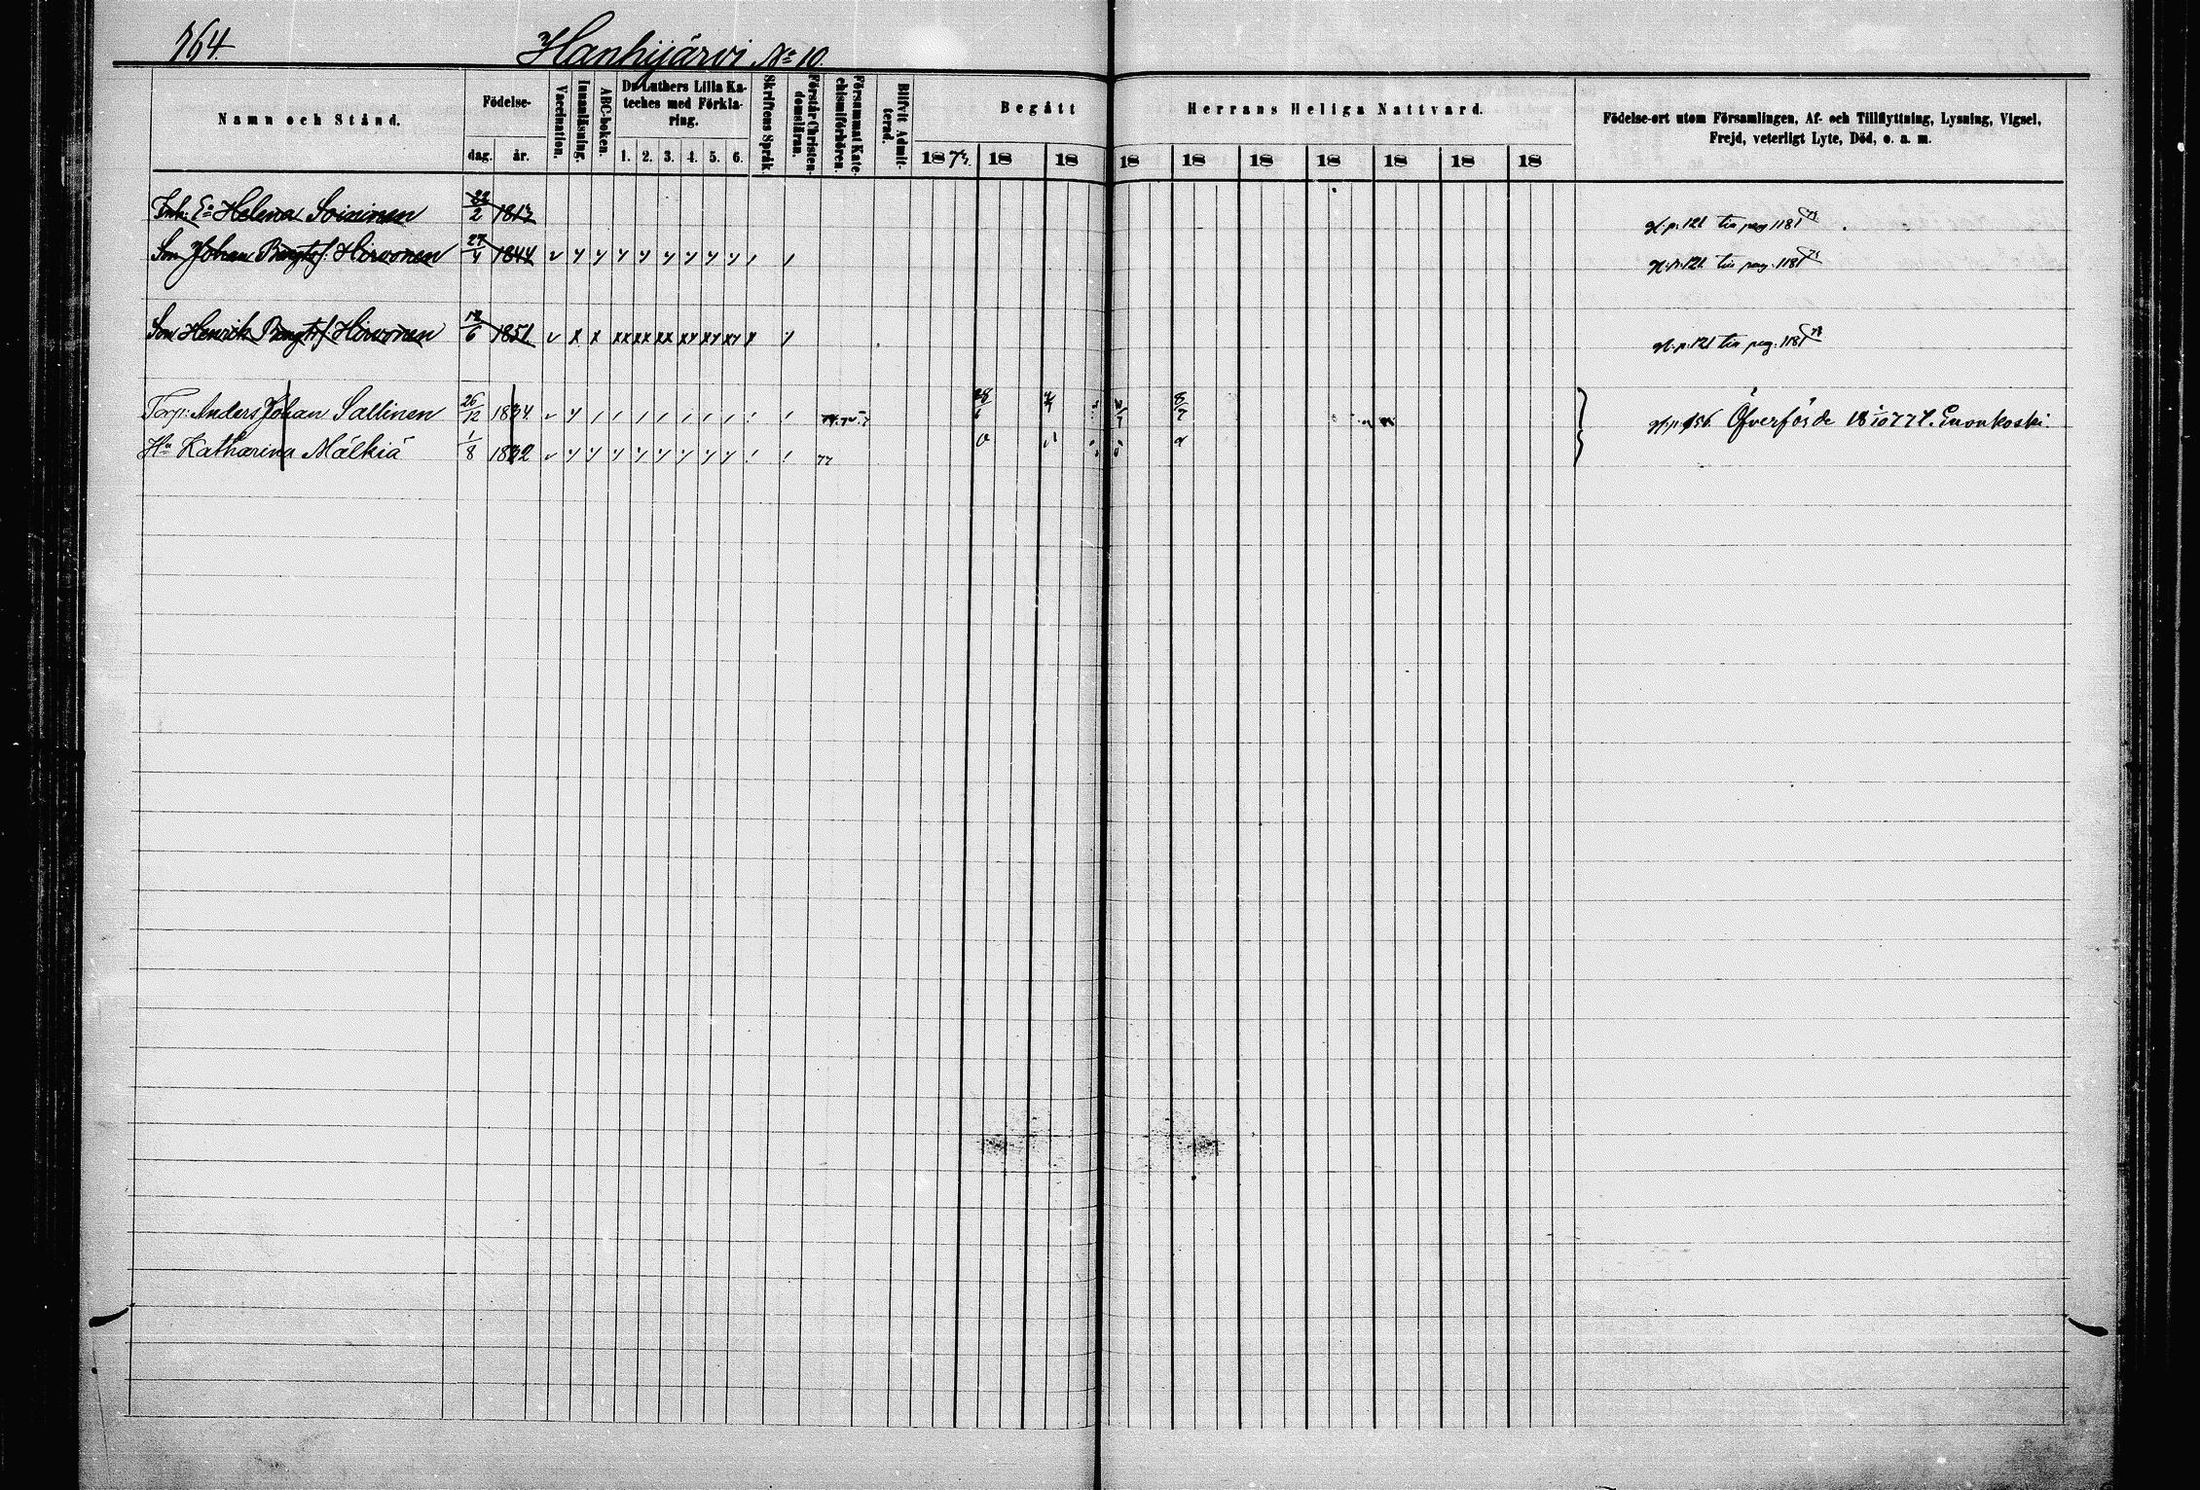 764.
Hanhijärvi No 10.
Namn och Stånd.
Födelse-
dag. år.
Vaccination.
Innanläsning.
ABC-boken.
Dr Luthers Lilla Ka-
teches med Förkla-
ring.
1. 2. 3. 4. 5. 6.
Skriftens Språk.
Förstår Christen-
domsläran.
Försummat Kate-
chismiförhören.
Blifvit Admit-
terad.
Begått Herrans Heliga Nattvard.
1873. 18 18 18 18 18 18 18 18 18
Födelse-ort utom Församlingen, Af- och Tillflyttning, Lysning, Vigsel,
Frejd, veterligt Lyte, Död, o. a. m.
Inh: Ea Helena Soininen 2 gl. p. 121 tin pag 1181
Son Johan Bengtsf. Hirvonen 27/4 1844 gl. p. 121 tin pag. 1181
Son Henrik Bengtsf. Hirvonen 6 1851 gl. p. 121 tin pag. 1181
Torp: Anders Johan Sallinen 26/12 1834 8/7 Öfverförde 18/10 77 t. Enonkoski
Hu Katharina Mälkiä 1/8 1832 77